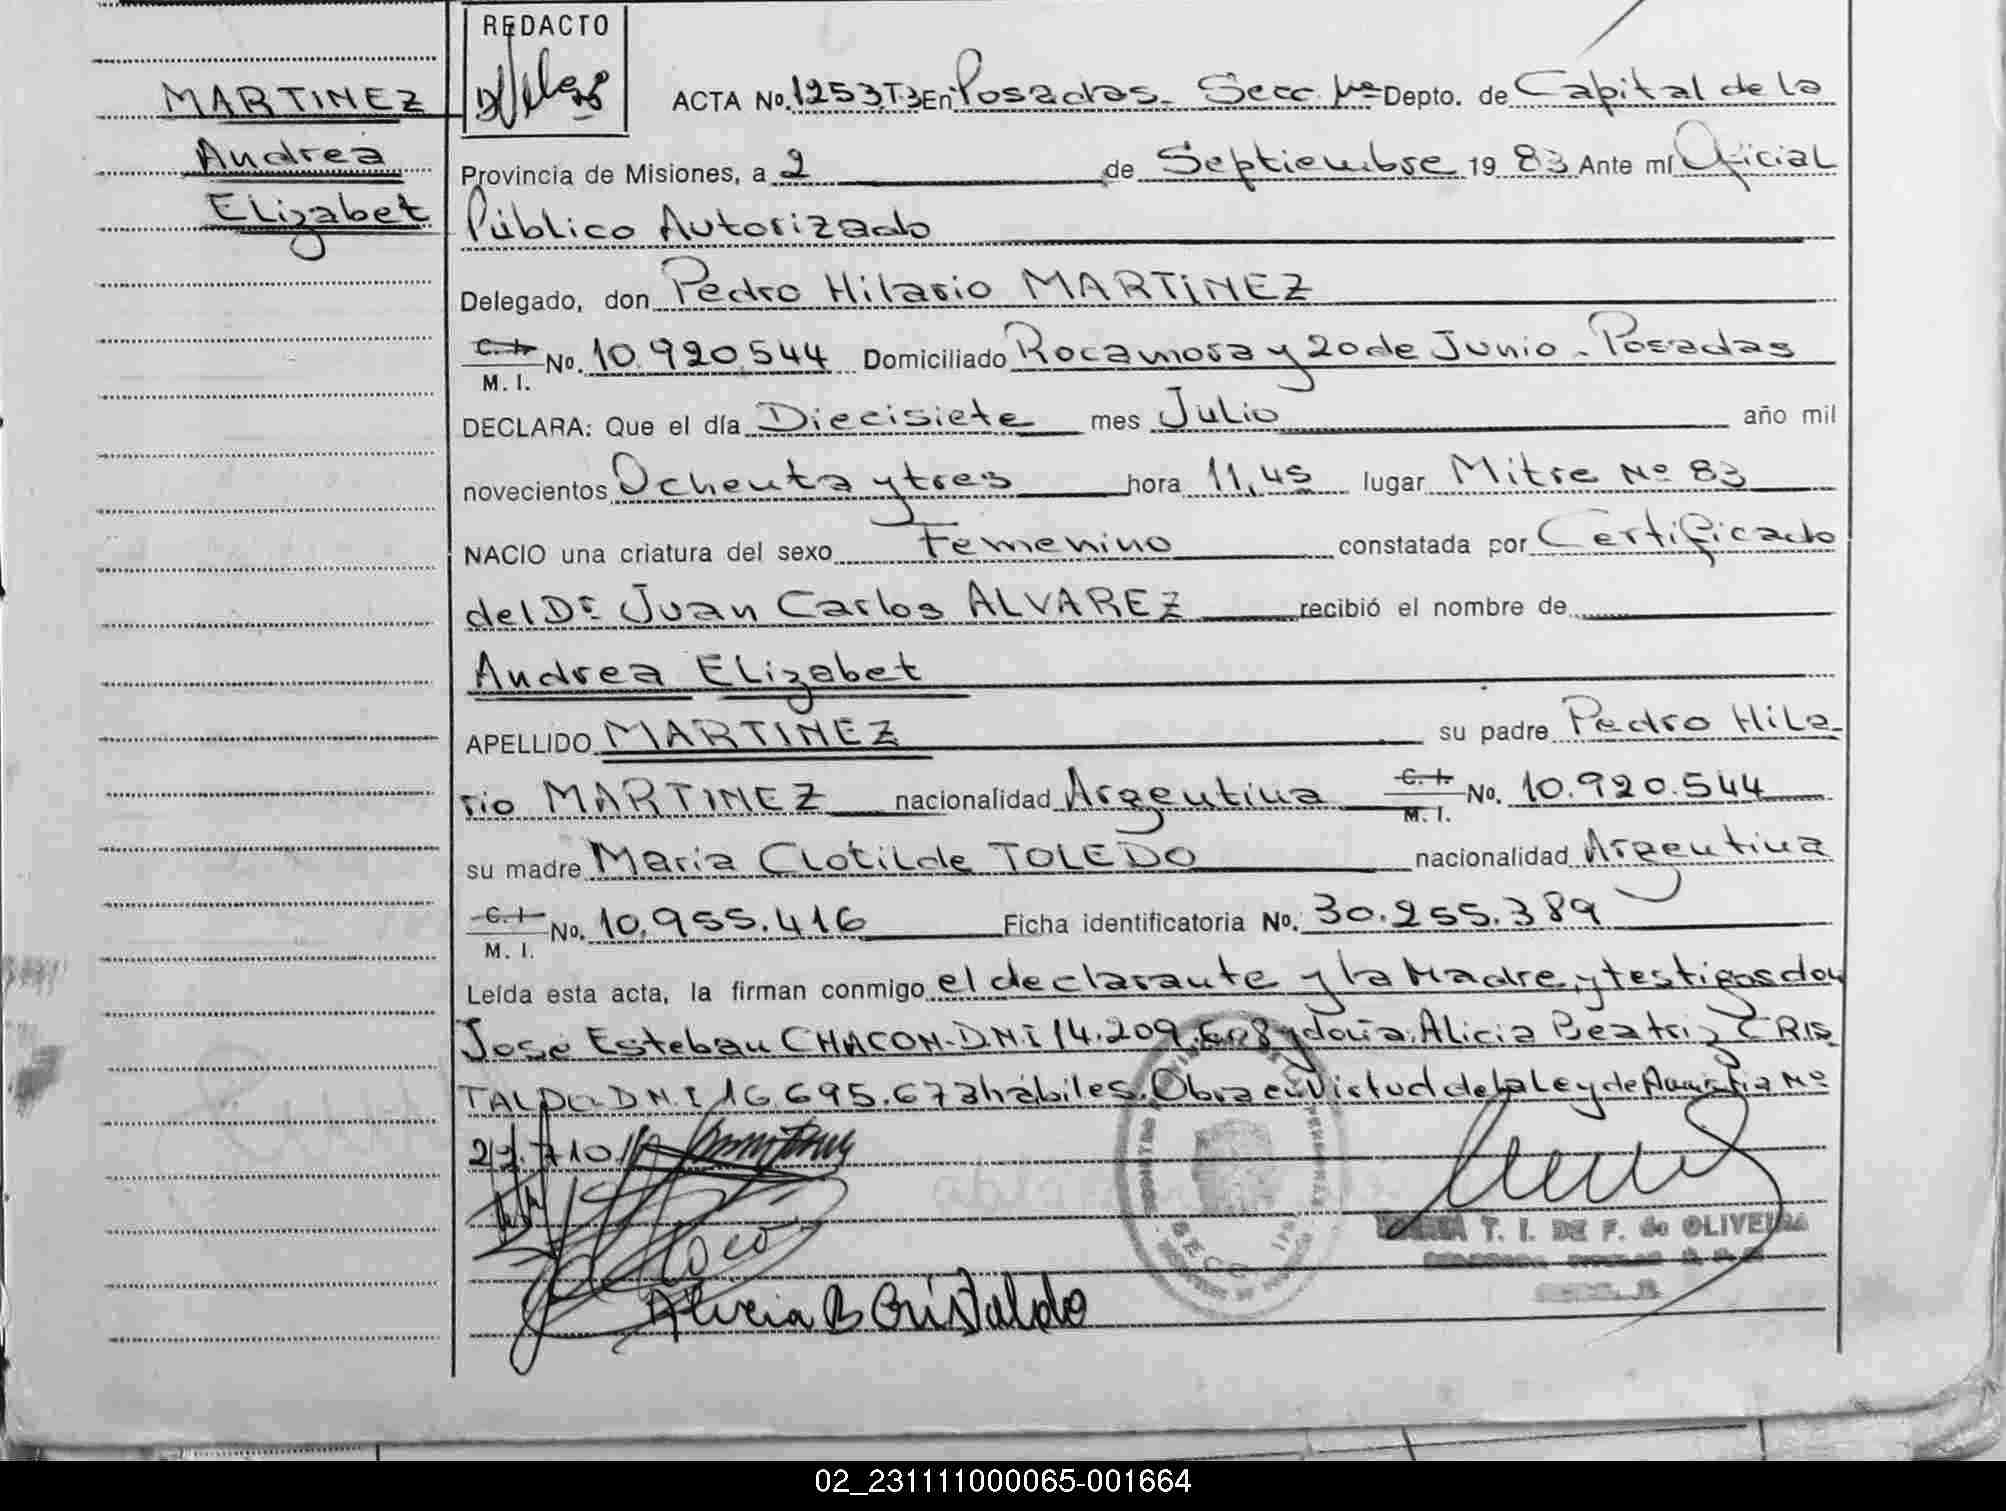 REDACTO
MARTINEZ
Andrea
Elizabet
ACTA No. 1253 T.3 En Posadas - Secc. 1ra Depto. de Capital de la
Provincia de Misiones, a 2 de Septiembre 19 83 Ante mí Oficial
Público Autorizado
Delegado, don Pedro Hilario MARTINEZ
C. I. M. I. No. 10.920.544 Domiciliado Rocamora y 20 de Junio - Posadas
DECLARA: Que el día Diecisiete mes Julio año mil
novecientos Ochenta y tres hora 11,45 lugar Mitre Nº 83
NACIO una criatura del sexo Femenino constatada por Certificado
del Dr. Juan Carlos ALVAREZ recibió el nombre de
Andrea Elizabet
APELLIDO MARTINEZ su padre Pedro Hila-
rio MARTINEZ nacionalidad Argentina C. I. M. I. No. 10.920.544
su madre Maria Clotilde TOLEDO nacionalidad Argentina
C. I. M. I. No. 10.955.416 Ficha identificatoria No. 30.255.389
Leída esta acta, la firman conmigo el declarante y la Madre, y testigos don
José Esteban CHACON - D.N.I 14.209. y doña Alicia Beatriz CRIS
TALDO - D.N.I 16.695.673 hábiles. Obra en Virtud de la Ley de Amnistia Nº
22.710
Alicia B Cristaldo
T. I. DE F. de OLIVEIRA
02_231111000065-001664